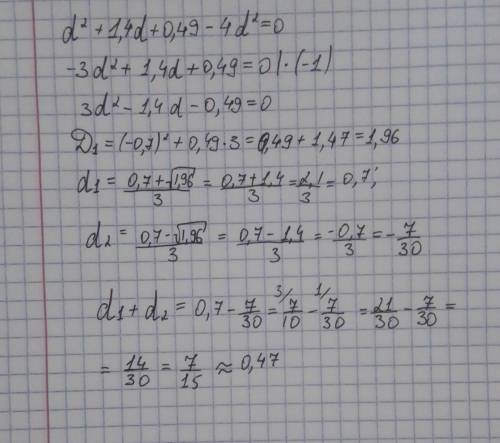 d² + 1,4d + 0,49 - 4d² = 0
-3d² + 1,4d + 0,49 = 0 | · (-1)
3d² - 1,4d - 0,49 = 0
D₁ = (-0,7)² + 0,49·3 = 0,49 + 1,47 = 1,96
d₁ = (0,7 + √1,96)/3 = (0,7 + 1,4)/3 = 2,1/3 = 0,7;
d₂ = (0,7 - √1,96)/3 = (0,7 - 1,4)/3 = -0,7/3 = -7/30
d₁ + d₂ = 0,7 - 7/30 = ³⁄ 7/10 - ¹⁄ 7/30 = 21/30 - 7/30 =
= 14/30 = 7/15 ≈ 0,47